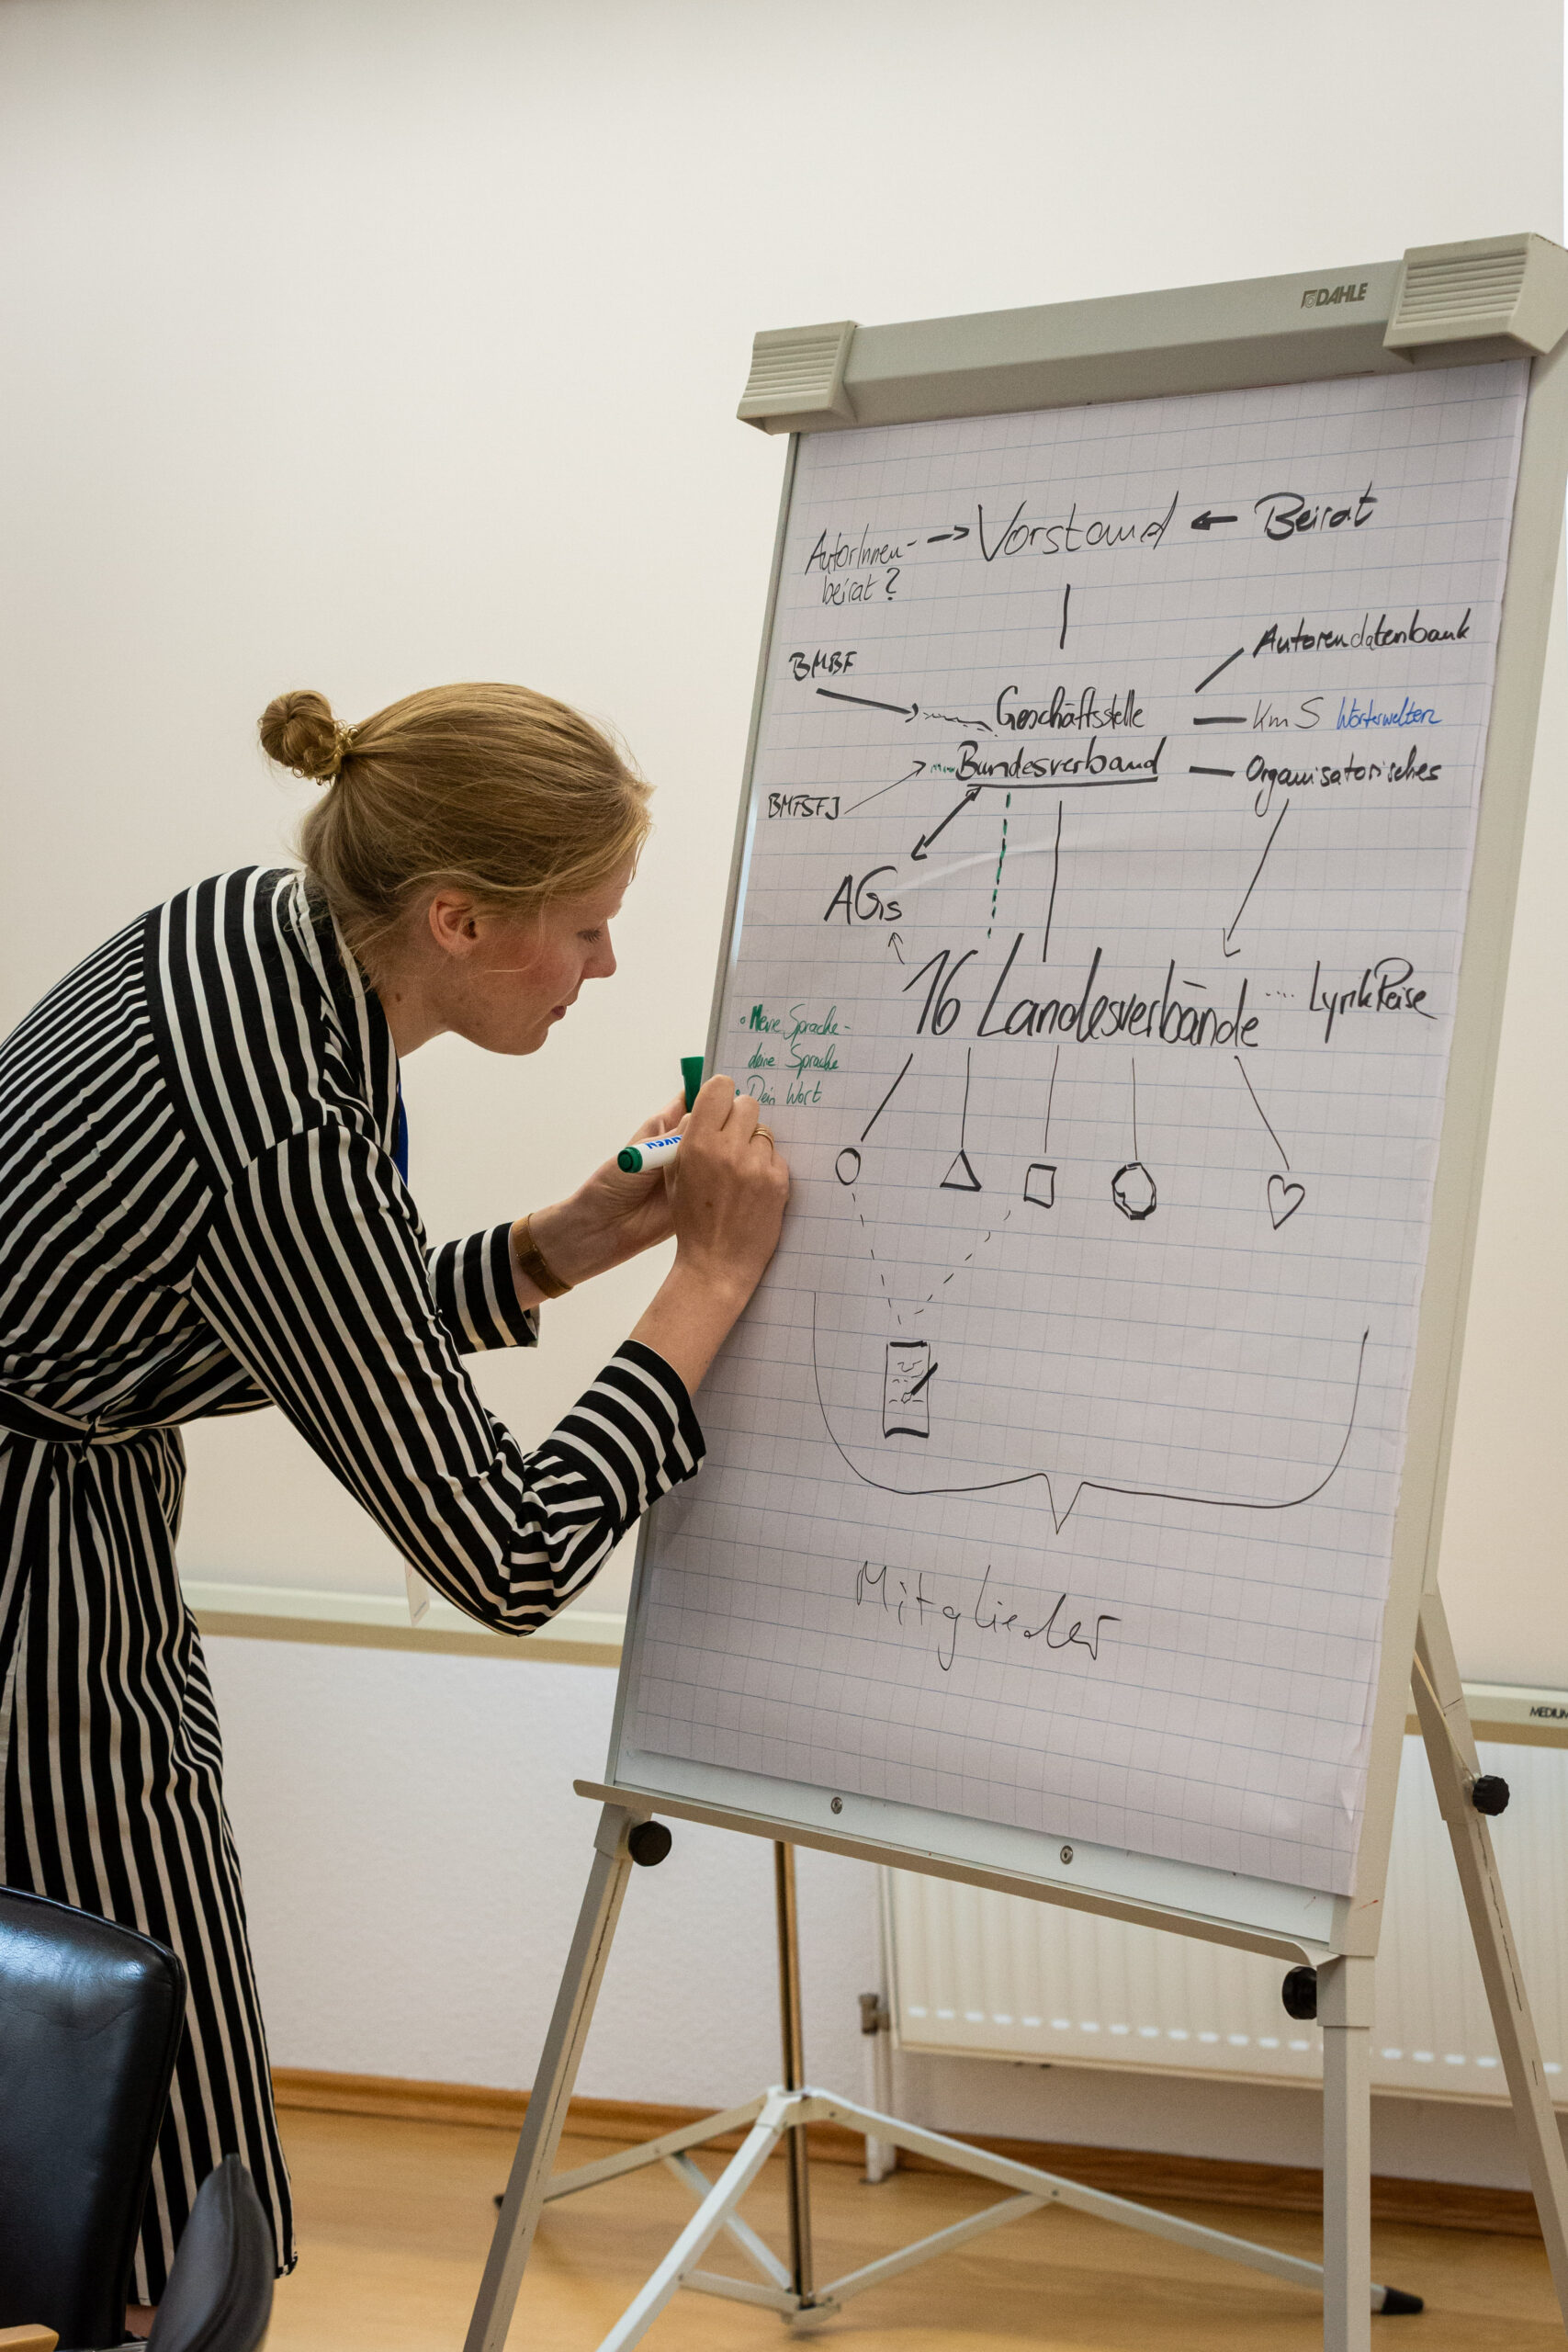 DAHLE
AutorInnen- → Vorstand ← Beirat
beirat?
BMBF
Autorendatenbank
Geschäftsstelle
KmS Wörterwelten
Bundesverband
Organisatorisches
BMFSFJ
AGs
16 Landesverbände .... LyrikReise
• Meine Sprache-
deine Sprache
• Dein Wort
Mitglieder
MEDIUM